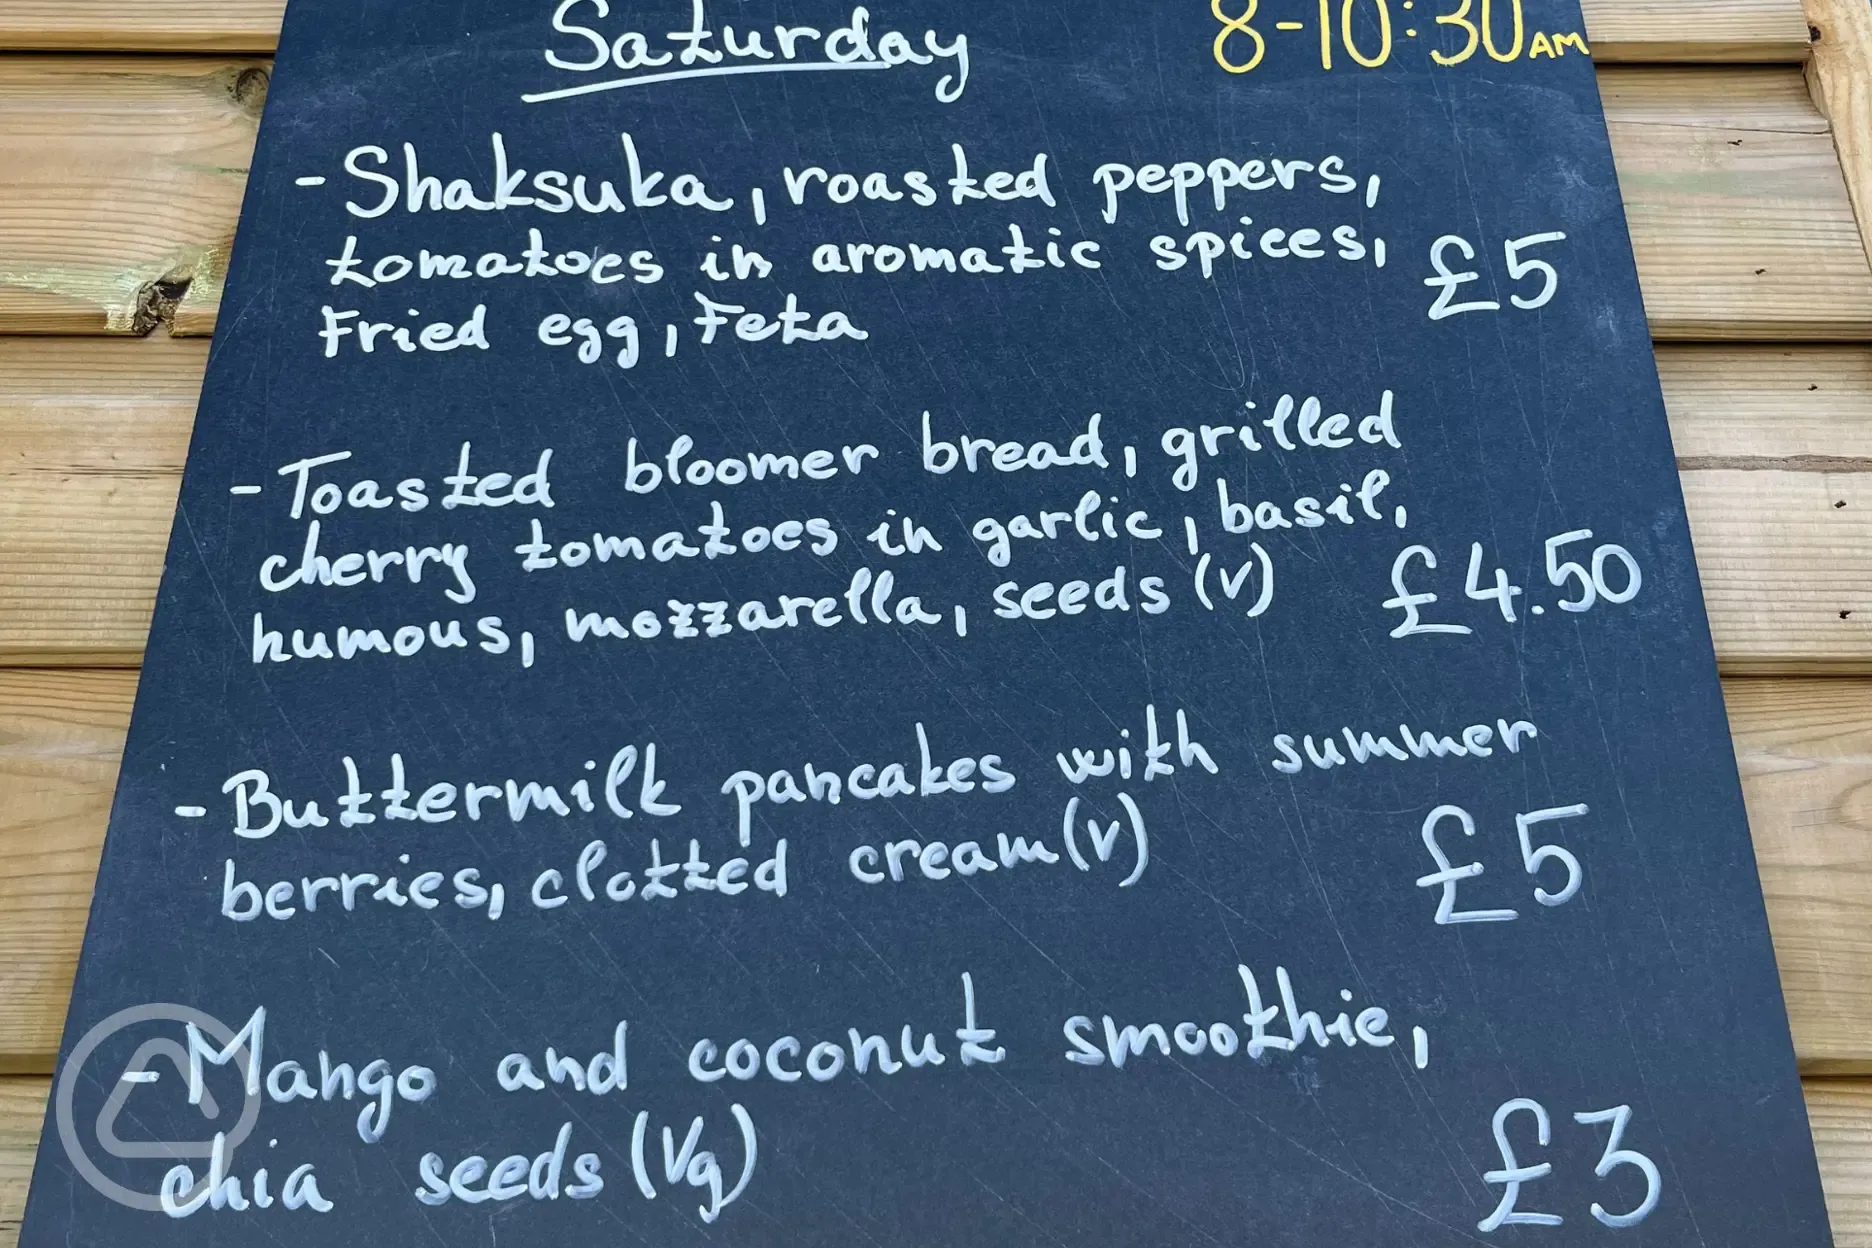 Saturday 8-10:30AM
- Shaksuka, roasted peppers,
tomatoes in aromatic spices,
Fried egg, Feta £5
- Toasted bloomer bread, grilled
cherry tomatoes in garlic, basil,
humous, mozzarella, seeds (v) £4.50
- Buttermilk pancakes with summer
berries, clotted cream (v) £5
- Mango and coconut smoothie,
chia seeds (Vg) £3